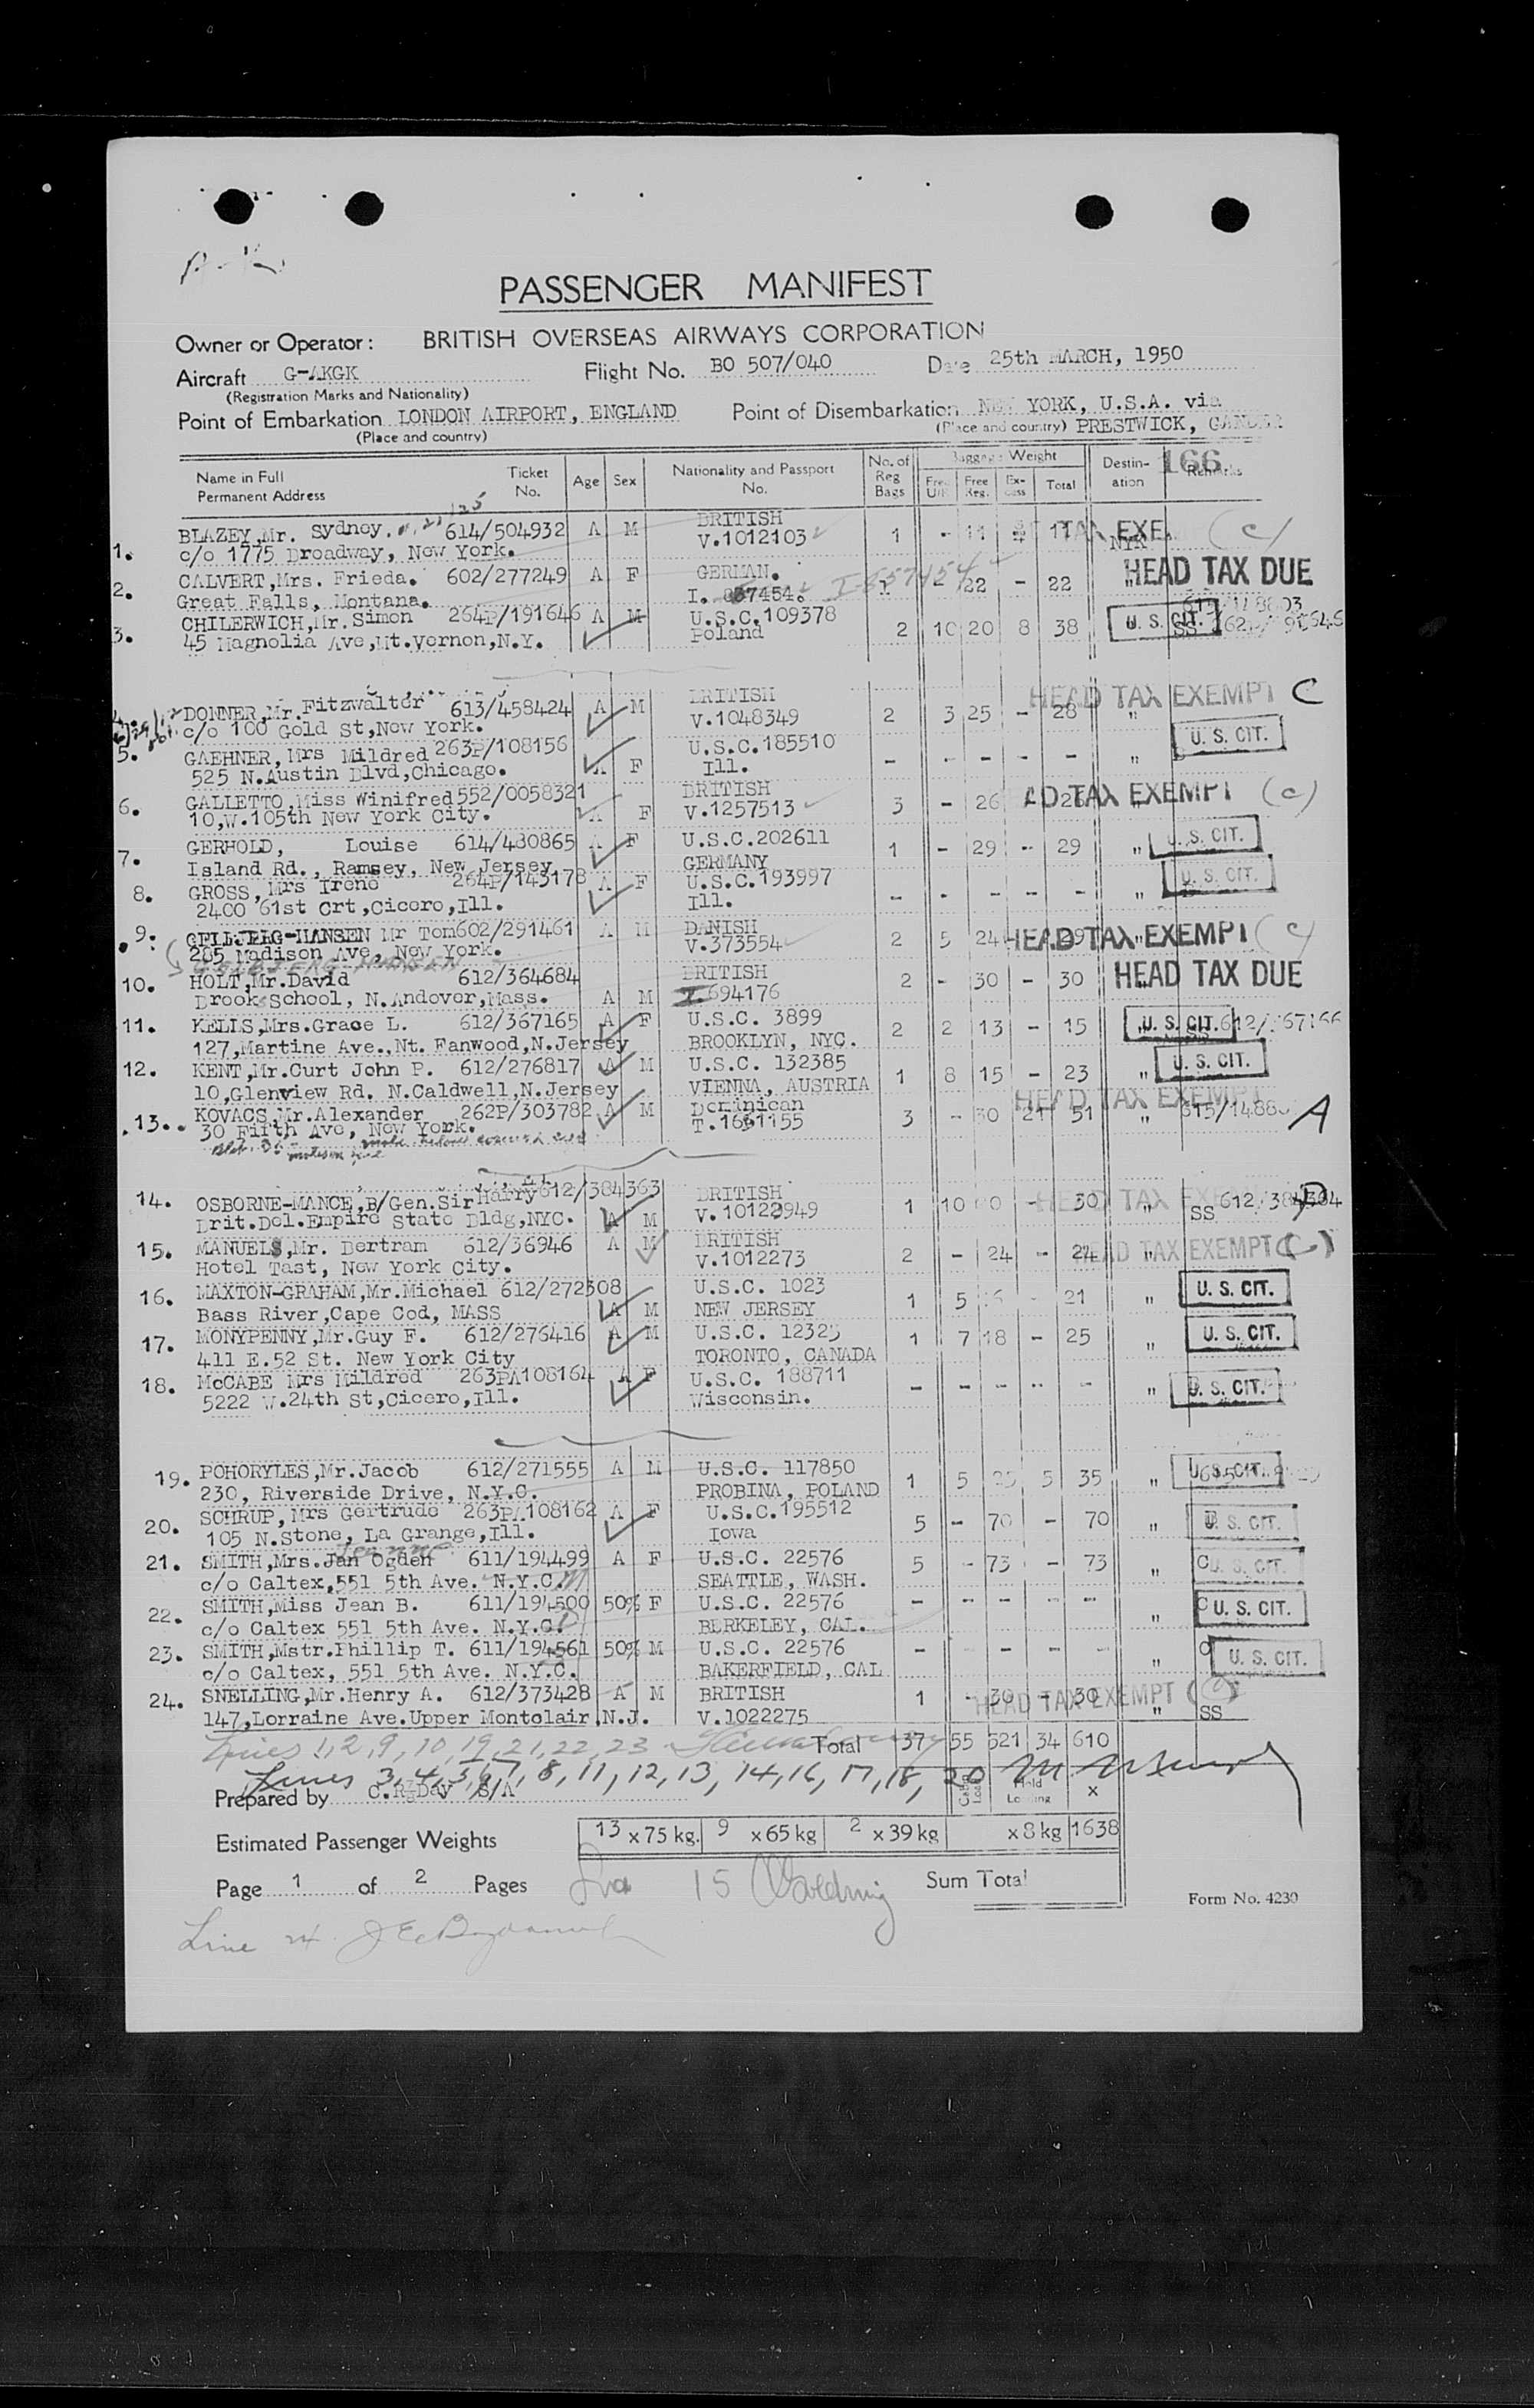 PASSENGER MANIFEST
Owner or Operator: BRITISH OVERSEAS AIRWAYS CORPORATION
Aircraft G-AKGK Flight No. BO 507/040 Date 25th MARCH, 1950
(Registration Marks and Nationality)
Point of Embarkation LONDON AIRPORT, ENGLAND Point of Disembarkation NEW YORK, U.S.A. via
(Place and country) (Place and country) PRESTWICK, GANDER
Name in Full Permanent Address Ticket No. Age Sex Nationality and Passport No. No. of Reg Bags Baggage Weight Free Free Reg. Ex-cess Total Destin-ation Remarks 166
1. BLAZEY, Mr. Sydney. 614/504932 A M BRITISH 1 - 11 11 TAX EXE (c)
c/o 1775 Broadway, New York. V.1012103 NYK
2. CALVERT, Mrs. Frieda. 602/277249 A F GERMAN. 1 - 22 - 22 " HEAD TAX DUE
Great Falls, Montana. I. 857454. I-857454
3. CHILERWICH, Mr. Simon 264P/191646 A M U.S.C. 109378 2 10 20 8 38 U. S. CIT. SS
45 Magnolia Ave, Mt.Vernon, N.Y. Poland
DONNER, Mr. Fitzwalter 613/458424 A M BRITISH 2 3 25 - 28 " HEAD TAX EXEMPT C
c/o 100 Gold St, New York. V.1048349
5. GAEHNER, Mrs Mildred 263P/108156 A F U.S.C. 185510 - - - - - " U. S. CIT.
525 N.Austin Blvd, Chicago. Ill.
6. GALLETTO, Miss Winifred 552/0058321 A F BRITISH 3 - 26 - 26 " AD TAX EXEMPT (c)
10,W.105th New York City. V.1257513
7. GERHOLD, Louise 614/480865 A F U.S.C. 202611 1 - 29 - 29 " U. S. CIT.
Island Rd., Ramsey, New Jersey GERMANY
8. GROSS, Mrs Irene 264P/143178 A F U.S.C. 193997 - - - - - " U. S. CIT.
2400 61st Crt, Cicero, Ill. Ill.
9. GELBJERG-HANSEN Mr Tom 602/291461 A M DANISH 2 5 24 29 " HEAD TAX EXEMPT (c)
285 Madison Ave, New York. V.373554
GELBJERG-HANSEN
10. HOLT, Mr. David 612/364684 A M BRITISH 2 - 30 - 30 " HEAD TAX DUE
Brooks School, N.Andover, Mass. I. 694176
11. KELLS, Mrs. Grace L. 612/367165 A F U.S.C. 3899 2 2 13 - 15 " U. S. CIT. 612/367166
127, Martine Ave., Nt. Fanwood, N.Jersey BROOKLYN, NYC.
12. KENT, Mr. Curt John P. 612/276817 A M U.S.C. 132385 1 8 15 - 23 " U. S. CIT.
10, Glenview Rd. N.Caldwell, N.Jersey VIENNA, AUSTRIA
13. KOVACS, Mr. Alexander 262P/303782 A M Dominican 3 - 30 21 51 " HEAD TAX EXEMPT A
30 Fifth Ave, New York. T.1661155
14. OSBORNE-MANCE, B/Gen. Sir Harry 612/384363 A M BRITISH 1 10 - 30 " HEAD TAX SS 612/384364
Brit.Del.Empire State Bldg, NYC. V.10122949
15. MANUELS, Mr. Bertram 612/36946 A M BRITISH 2 - 24 - 24 " HEAD TAX EXEMPT (C)
Hotel Tast, New York City. V.1012273
16. MAXTON-GRAHAM, Mr. Michael 612/272308 A M U.S.C. 1023 1 5 16 - 21 " U. S. CIT.
Bass River, Cape Cod, MASS NEW JERSEY
17. MONYPENNY, Mr. Guy F. 612/276416 A M U.S.C. 12325 1 7 18 - 25 " U. S. CIT.
411 E.52 St. New York City TORONTO, CANADA
18. McCABE Mrs Mildred 263PA108164 A F U.S.C. 188711 - - - - - " U. S. CIT.
5222 W.24th St, Cicero, Ill. Wisconsin.
19. POHORYLES, Mr. Jacob 612/271555 A M U.S.C. 117850 1 5 25 5 35 " U. S. CIT.
230, Riverside Drive, N.Y.C. PROBINA, POLAND
20. SCHRUP, Mrs Gertrude 263PA108162 A F U.S.C. 195512 5 - 70 - 70 " U. S. CIT.
105 N.Stone, La Grange, Ill. Iowa
21. SMITH, Mrs. Jan Ogden 611/194499 A F U.S.C. 22576 5 - 73 - 73 " C U. S. CIT.
c/o Caltex, 551 5th Ave. N.Y.C. SEATTLE, WASH.
22. SMITH, Miss Jean B. 611/194500 50% F U.S.C. 22576 - - - - - " C U. S. CIT.
c/o Caltex 551 5th Ave. N.Y.C. BERKELEY, CAL.
23. SMITH, Mstr. Phillip T. 611/194561 50% M U.S.C. 22576 - - - - " C U. S. CIT.
c/o Caltex, 551 5th Ave. N.Y.C. BAKERFIELD, CAL
24. SNELLING, Mr. Henry A. 612/373428 A M BRITISH 1 - 30 - 30 " HEAD TAX EXEMPT (C)
147, Lorraine Ave. Upper Montclair, N.J. V.1022275 SS
Lines 1, 2, 9, 10, 19, 21, 22, 23 Total 37 55 521 34 610
Lines 3, 4, 5, 6, 7, 8, 11, 12, 13, 14, 16, 17, 18, 20
Prepared by C.R.Day S/A x
Estimated Passenger Weights 13 x 75 kg. 9 x 65 kg 2 x 39 kg x 8 kg 1638
Page 1 of 2 Pages 15 Sum Total
Form No. 4230
Line 24